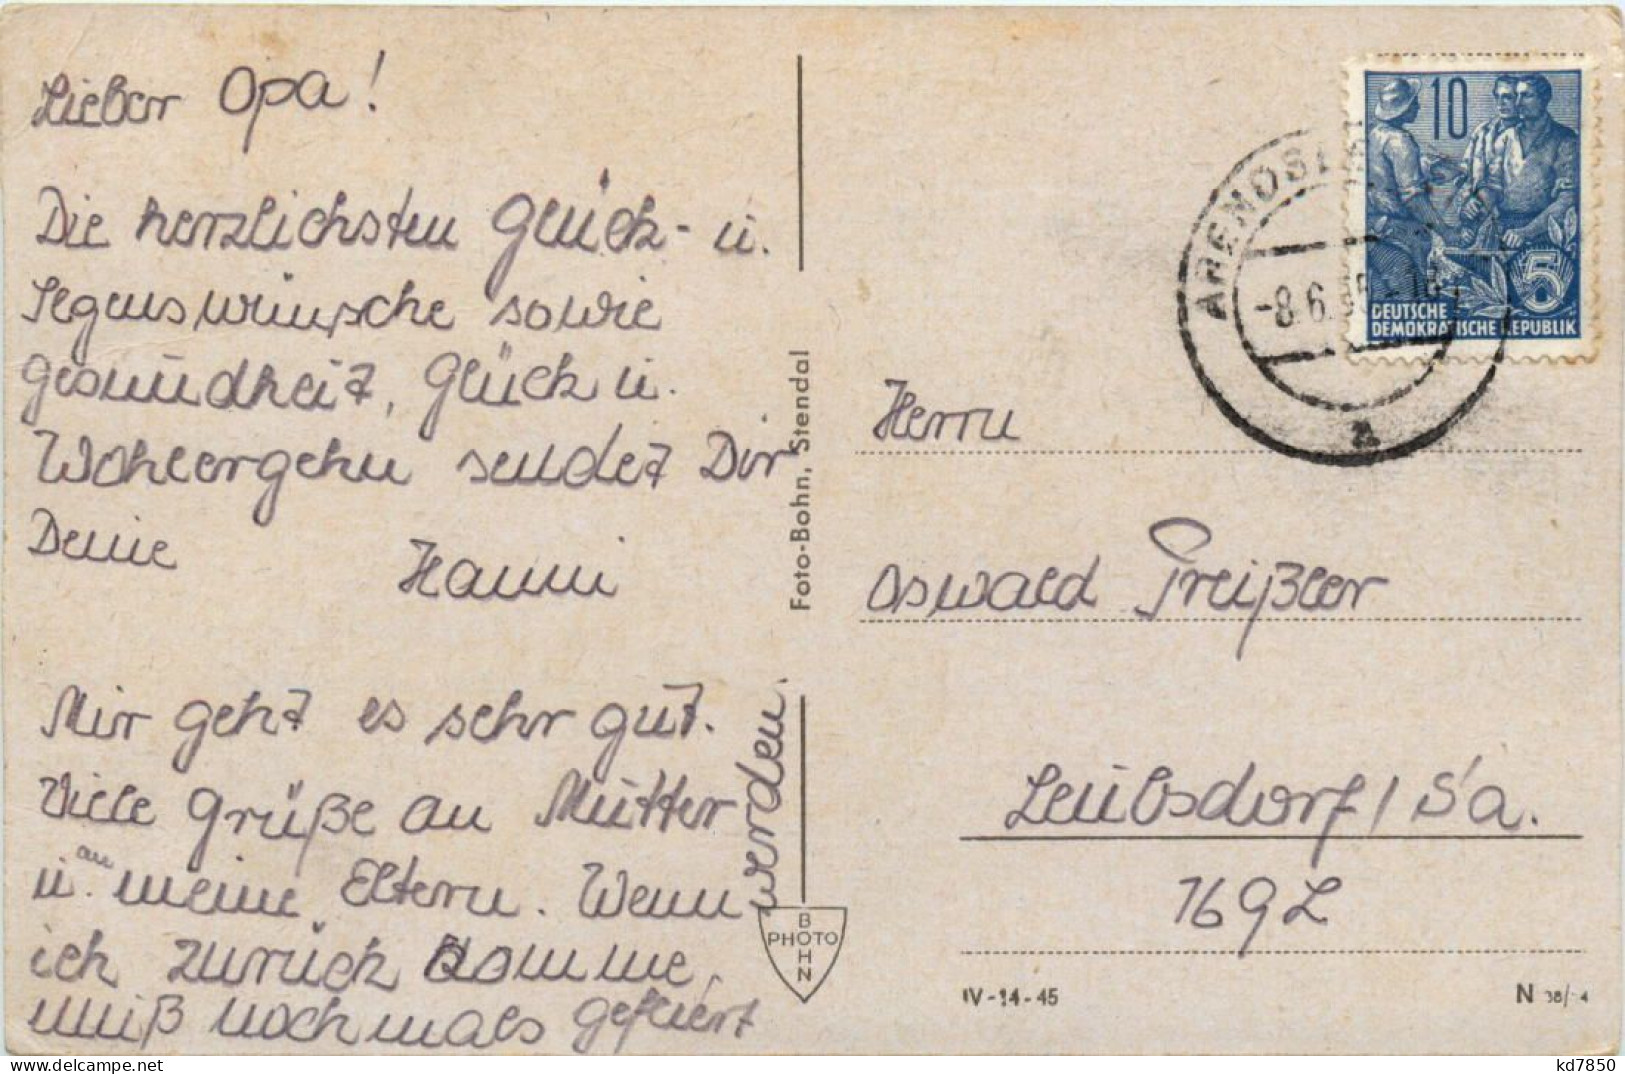 Lieber Opa!
Die herzlichsten Glück- u.
Segenswünsche sowie
Gesundheit, Glück u.
Wohlergehn sendet Dir
Deine Hanni
Mir geht es sehr gut.
Viele Grüße an Mutter
u. an meine Eltern. Wenn
ich zurück komme,
muß nochmals gefeiert
werden.
Foto-Bohn, Stendal
PHOTO
BOHN
10
5
DEUTSCHE
DEMOKRATISCHE REPUBLIK
-8.6.
a
Herrn
Oswald Preißler
Leubsdorf / Sa.
169 L
IV-14-45
N
kd7850